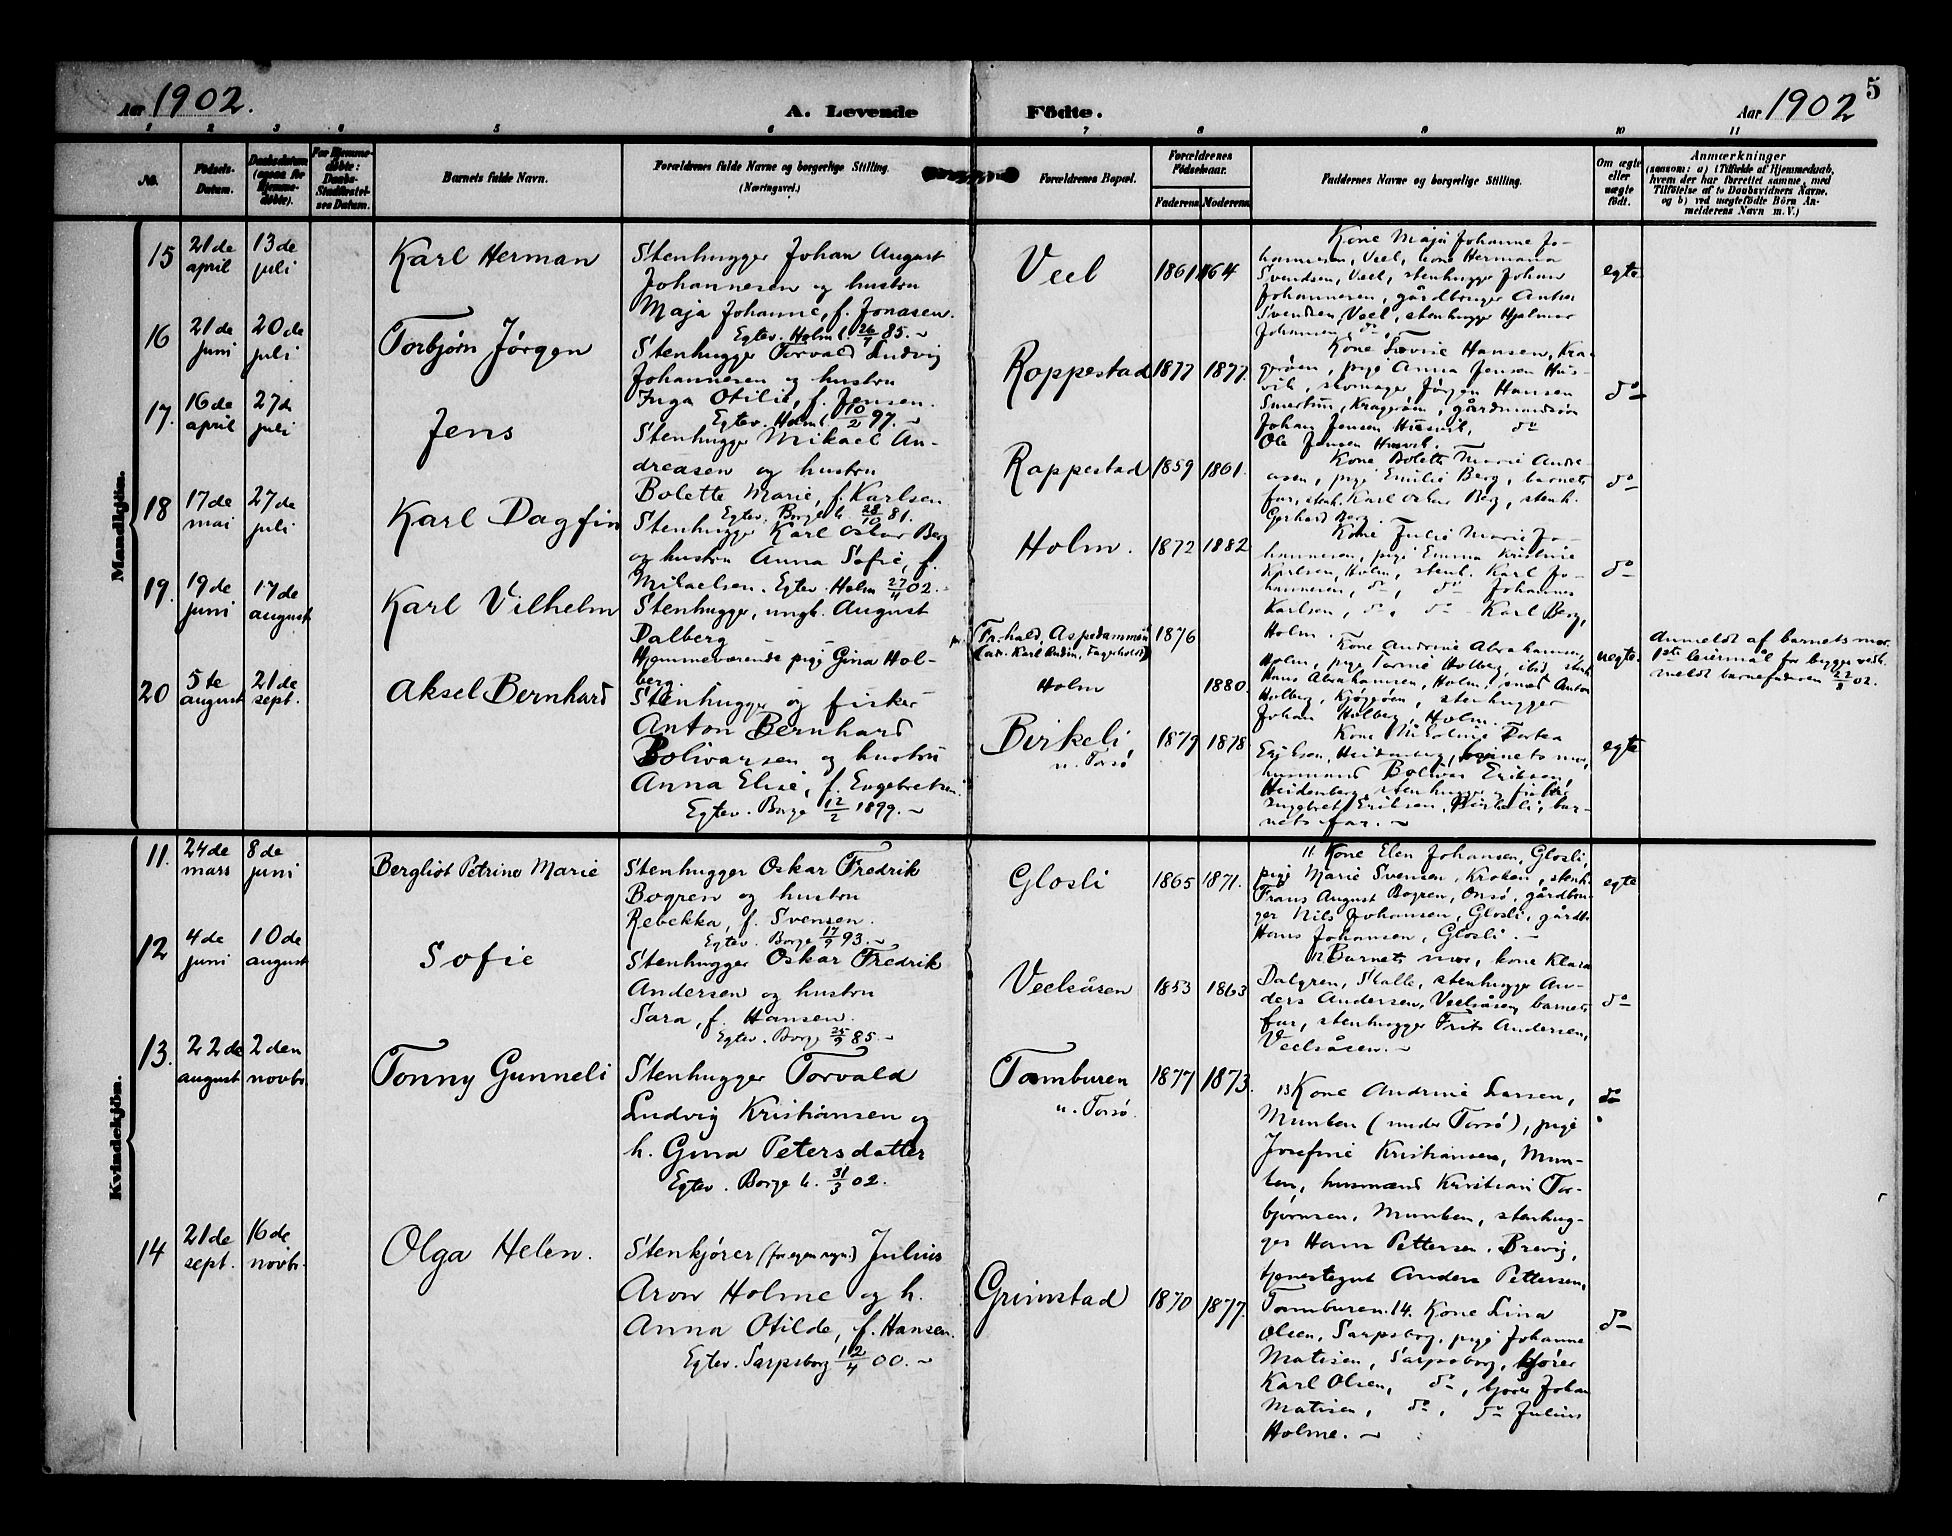 Aar 1902.
A. Levende Födte.
Aar 1902
5
1 2 3 4 5 6 7 8 9 10 11
No.
Födsels-
Datum.
Daabsdatum
(ogsaa for
Hjemme-
döbte).
For Hjemme-
döbte:
Daabs-
Stadfæstel-
ses Datum.
Barnets fulde Navn.
Forældrenes fulde Navne og borgerlige Stilling.
(Næringsvei.)
Forældrenes Bopæl.
Forældrenes
Födselsaar.
Faderens
Moderens
Faddernes Navne og borgerlige Stilling.
Om ægte
eller
uægte
födt.
Anmærkninger
(saasom: a) i Tilfælde af Hjemmedaab,
hvem der har forrettet samme, med
Tilföielse af to Daabsvidners Navne.
og b) ved uægtefödte Börn An-
melderens Navn m. V.)
Mandkjön.
15
21de
april
13de
juli
Karl Herman
Stenhugger Johan August
Johannesen og hustru
Maja Johanne, f. Jonasen.
Egtev. Holm k. 26/7 85. ~
Veel
1861
1864
Kone Maja Johanne Jo-
hannesen, Veel, kone Hermana
Svendsen, Veel, stenhugger Johan
Johannesen, gårdbruger Anton
Svendsen, Veel, stenhugger Hjalmar
Johannesen, do.
egte
16
21de
juni
20de
juli
Torbjørn Jørgen
Stenhugger Torvald Ludvig
Johannesen og hustru
Inga Otilie, f. Jensen.
Egtev. Holm k. 10/2 97. ~
Roppestad
1877
1877.
Kone Lovise Hansen, Kra-
gerøen, pige Anna Jensen Hus-
vik, skomager Jørgen Hansen
Kragerøen, gårdmandssøn
Johan Jensen Husvik, do
Ole Jensen Husvik. ~
do
17.
16de
april
27de
juli
Jens
Stenhugger Mikael An-
dreasen og hustru
Bolette Marie, f. Karlsen.
Egtev. Borge k. 28/10 81.
Roppestad
1859
1861.
Kone Bolette Marie Andre-
asen, pige Emilie Berg, barnets
far, stenh. Karl Oskar Berg, stenh.
Gerhard Berg.
do
18
17de
mai
27de
juli
Karl Dagfin
Stenhugger Karl Oskar Berg
og hustru Anna Sofie, f.
Mikaelsen. Egtev. Holm 27/4 02. ~
Holm.
1872
1882
Kone Julie Marie Jo-
hannesen, pige Emma Kristine
Karlsen, Holm, stenh. Karl Jo-
hannesen, do, do Johannes
Karlsen, do, do Karl Berg,
Holm.
do
19.
19de
juni
17de
august
Karl Vilhelm
Stenhugger, ungk. August
Dalberg
Hjemmeværende pige Gina Hol-
berg.
(Fr.hald, Aspedammen
(adr. Karl Rudin, Fagerholt)
Holm
1876
1880.
Kone Andrine Abrahamsen,
Holm, pige Tomine Holberg, ibid, stenh.
Hans Abrahamsen, Holm, smed Anton
Holberg, Kjøgøen, stenhugger
Johan Holberg, Holm.
uegte.
Anmeldt af barnets mor.
1ste leiermål for begge vedk.
meldt barnefaderen 22/8 02.
20
5te
august
21de
sept.
Aksel Bernhard
Stenhugger og fisker
Anton Bernhard
Bolivarsen og hustru
Anna Elise, f. Engebretsen.
Egtev. Borge 12/2 1899. ~
Birkeli,
u. Torsø
1879
1878
Kone Nikoline Dortea
Eriksen, Heidenberg, barnets mor,
husmand Bolivar Eriksen,
Heidenberg, stenhugger og fisker
Engbret Eriksen, Birkeli, bar-
nets far. ~
egte
Kvindekjön.
11.
24de
mars
8de
juni
Bergliot Petrine Marie
Stenhugger Oskar Fredrik
Bogren og hustru
Rebekka, f. Svensen.
Egtev. Borge 17/9 93. ~
Glosli
1865
1871.
11. Kone Elen Johansen, Glosli,
pige Marie Svensen, Kroken, stenh.
Frans August Bogren, Onsø, gårdbru-
ger Nils Johansen, Glosli, gårdb.
Hans Johansen, Glosli. ~
egte
12
4de
juni
10de
august
Sofie
Stenhugger Oskar Fredrik
Andersen og hustru
Sara, f. Hansen.
Egtev. Borge 25/9 85. ~
Veelsåsen
1853
1863
12 Barnets mor, kone Klara
Dalgren, Skalle, stenhugger An-
ders Andersen, Veelsåsen, barnets
far, stenhugger Frits Andersen,
Veelsåsen. ~
do
13.
22de
august
2den
novbr.
Tonny Gunneli
Stenhugger Torvald
Ludvig Kristiansen og
h. Gina Petersdatter
Egtev. Borge k. 31/3 02.
Tamburen
u. Torsø.
1877
1873.
13 Kone Andrine Larsen,
Munken (under Torsø), pige
Josefine Kristiansen, Mun-
ken, husmand Kristian Tor-
bjørnsen, Munken, stenhug-
ger Hans Pettersen, Brevig,
tjenestegut Anders Pettersen,
Tamburen.
do
14
21de
sept.
16de
novbr.
Olga Helen.
Stenkjører (for egen regn.) Julius
Aron Holme og h.
Anna Otilde, f. Hansen.
Egtev. Sarpsborg 12/4 00. ~
Grimstad
1870
1877.
14. Kone Lina
Olsen, Sarpsborg, pige Johanne
Matisen, Sarpsborg, kjører
Karl Olsen, do, kjører Johan
Matisen, do, do Julius
Holme. ~
do